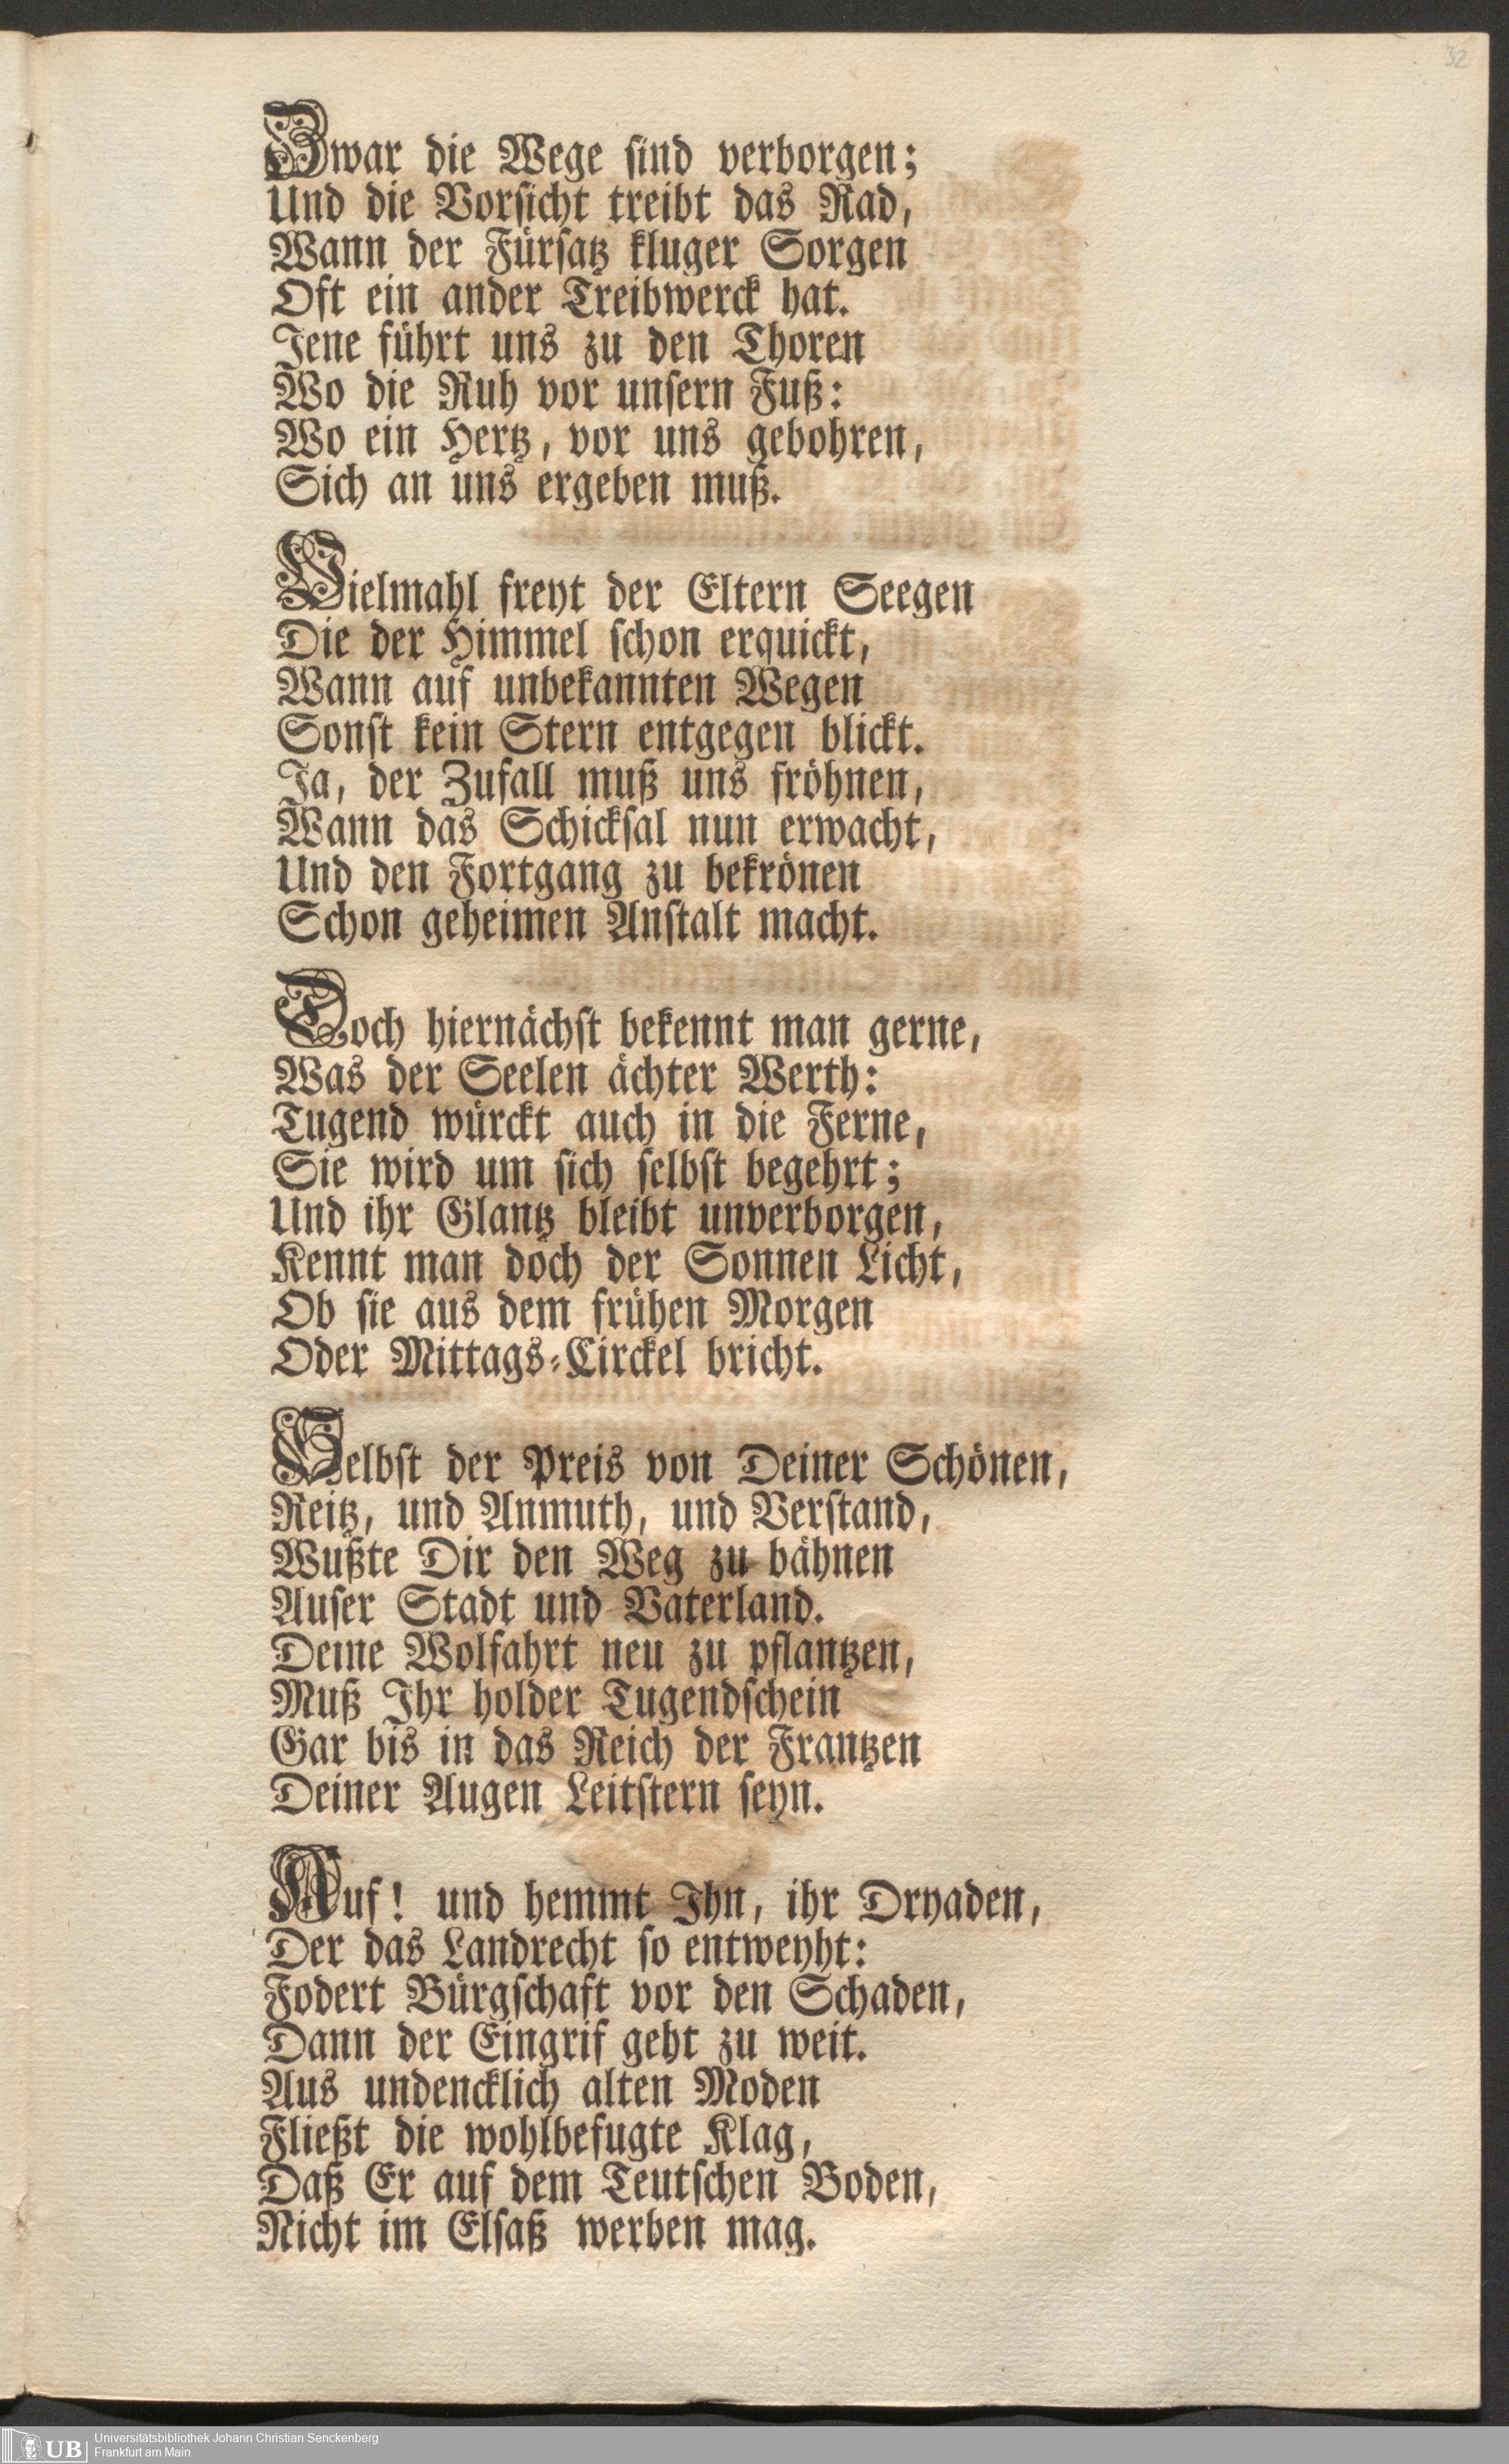 32
Zwar die Wege sind verborgen;
Und die Vorsicht treibt das Rad,
Wann der Fürsatz kluger Sorgen
Oft ein ander Treibwerck hat.
Jene führt uns zu den Thoren
Wo die Ruh vor unsern Fuß:
Wo ein Hertz, vor uns gebohren,
Sich an uns ergeben muß.
Vielmahl freyt der Eltern Seegen
Die der Himmel schon erquickt,
Wann auf unbekannten Wegen
Sonst kein Stern entgegen blickt.
Ja, der Zufall muß uns fröhnen,
Wann das Schicksal nun erwacht,
Und den Fortgang zu bekrönen
Schon geheimen Anstalt macht.
Doch hiernächst bekennt man gerne,
Was der Seelen ächter Werth:
Tugend würckt auch in die Ferne,
Sie wird um sich selbst begehrt;
Und ihr Glantz bleibt unverborgen,
Kennt man doch der Sonnen Licht,
Ob sie aus dem frühen Morgen
Oder Mittags-Circkel bricht.
Selbst der Preis von Deiner Schönen,
Reitz, und Anmuth, und Verstand,
Wußte Dir den Weg zu bähnen
Auser Stadt und Vaterland.
Deine Wolfahrt neu zu pflantzen,
Muß Ihr holder Tugendschein
Gar bis in das Reich der Frantzen
Deiner Augen Leitstern seyn.
Auf! und hemmt Ihn, ihr Dryaden,
Der das Landrecht so entweyht:
Fodert Bürgschaft vor den Schaden,
Dann der Eingrif geht zu weit.
Aus undencklich alten Moden
Fließt die wohlbefugte Klag,
Daß Er auf dem Teutschen Boden,
Nicht im Elsaß werben mag.
UB Universitätsbibliothek Johann Christian Senckenberg
Frankfurt am Main